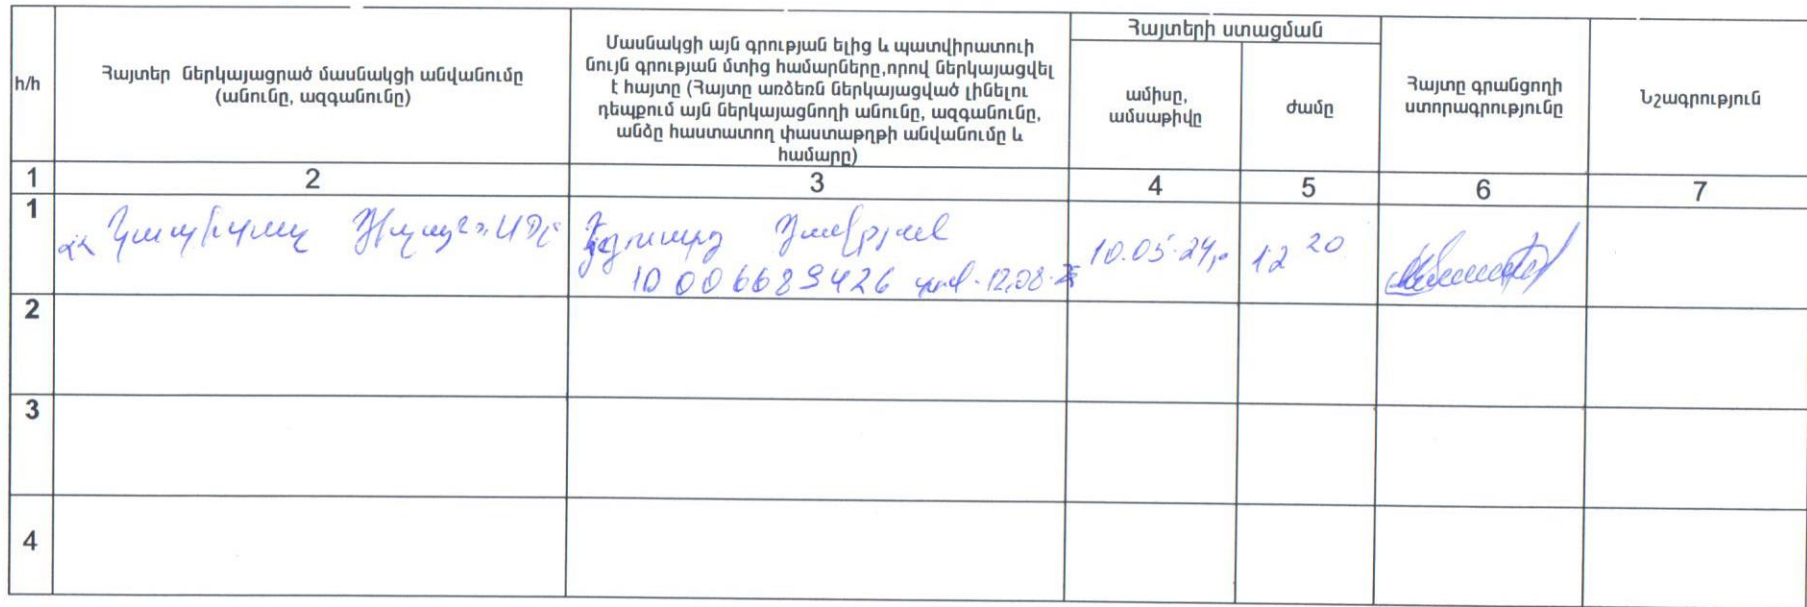 h/h
Հայտեր ներկայացրած մասնակցի անվանումը
(անունը, ազգանունը)
Մասնակցի այն գրության ելից և պատվիրատուի
նույն գրության մտից համարները,որով ներկայացվել
է հայտը (Հայտը առձեռն ներկայացված լինելու
դեպքում այն ներկայացնողի անունը, ազգանունը,
անձը հաստատող փաստաթղթի անվանումը և
համարը)
Հայտերի ստացման
ամիսը,
ամսաթիվը
ժամը
Հայտը գրանցողի
ստորագրությունը
Նշագրություն
1 2 3 4 5 6 7
1
ID 006689426 12.08.
10.05.24
12 20
2
3
4